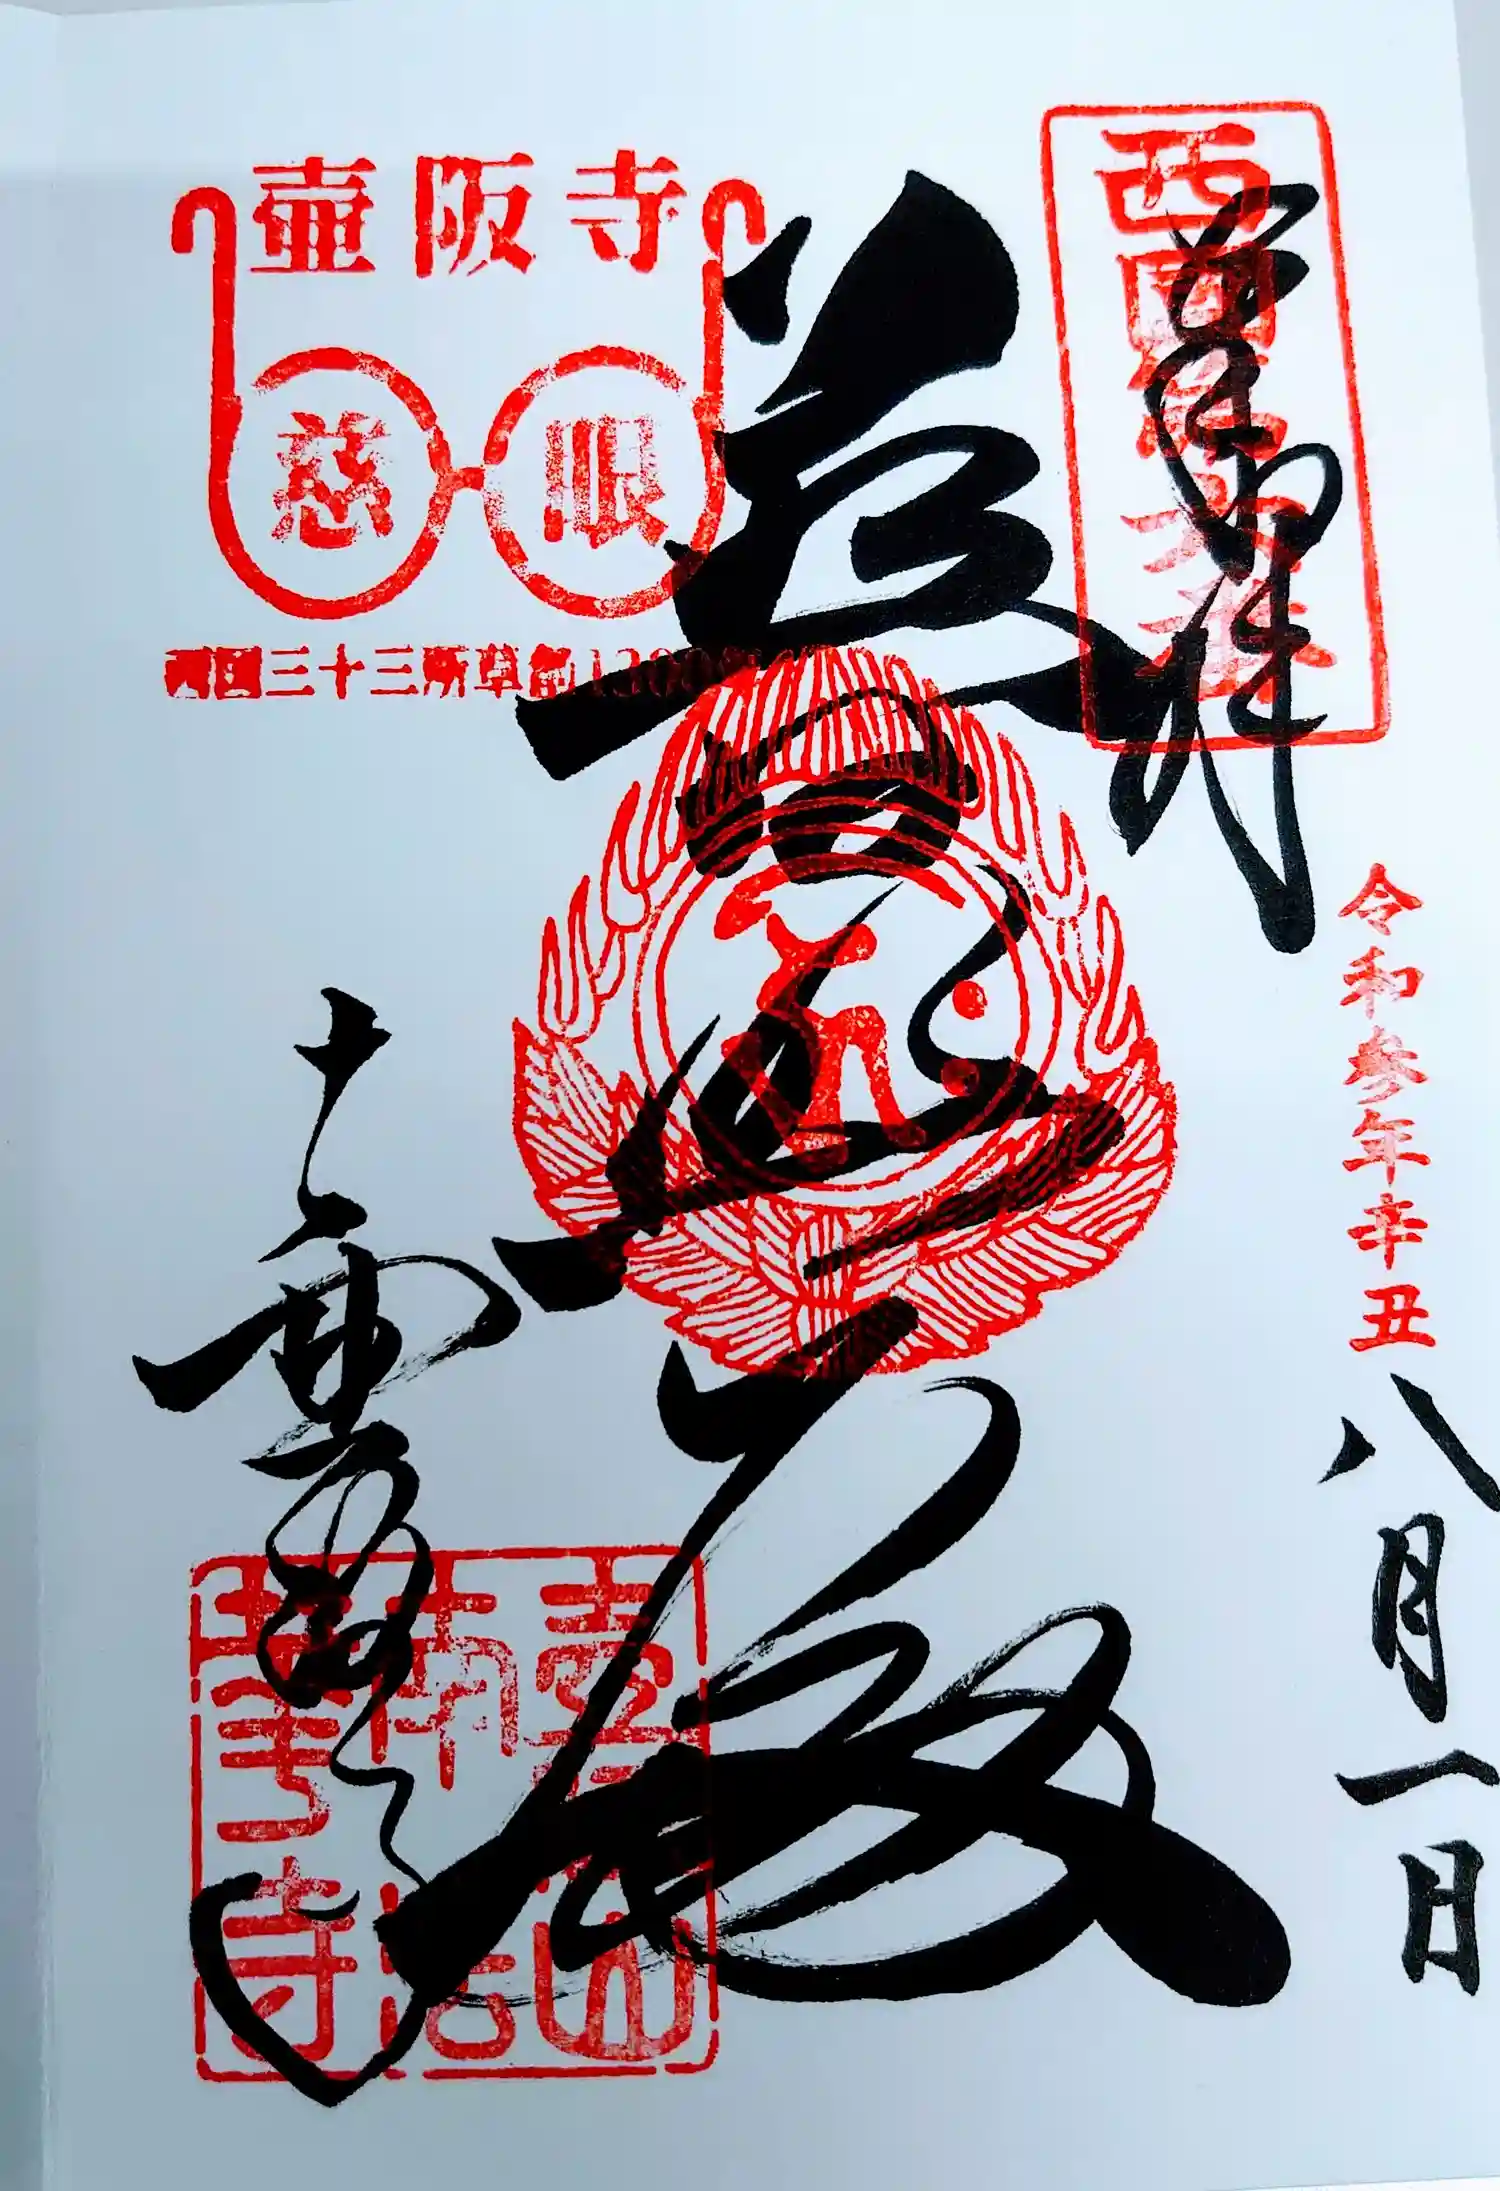 奉拝
西國第六番
令和参年辛丑
八月一日
普照殿
壷阪寺
慈眼
西国三十三所草創1300年
壷阪寺
壷阪山
南法
華寺